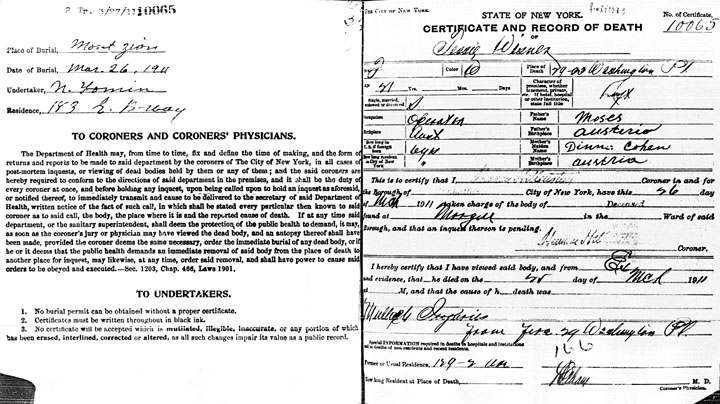 10065
Place of Burial, Mount Zion
Date of Burial, Mar. 26, 1911
Undertaker,
Residence, 183 E. B-way
TO CORONERS AND CORONERS' PHYSICIANS.
The Department of Health may, from time to time, fix and define the time of making, and the form of
returns and reports to be made to said department by the coroners of The City of New York, in all cases of
post-mortem inquests, or viewing of dead bodies held by them or any of them; and the said coroners are
hereby required to conform to the directions of said department in the premises, and it shall be the duty of
every coroner at once, and before holding any inquest, upon being called upon to hold an inquest as aforesaid,
or notified thereof, to immediately transmit and cause to be delivered to the secretary of said Department of
Health, written notice of the fact of such call, in which shall be stated every particular then known to said
coroner as to said call, the body, the place where it is and the reported cause of death. If at any time said
department, or the sanitary superintendent, shall deem the protection of the public health to demand, it may,
as soon as the coroner's jury or physician may have viewed the dead body, and an autopsy thereof shall have
been made, provided the coroner deems the same necessary, order the immediate burial of any dead body, or if
he or it deems that the public health demands an immediate removal of said body from the place of death to
another place for inquest, may likewise, at any time, order said removal, and shall have power to cause said
orders to be obeyed and executed.—Sec. 1203, Chap. 466, Laws 1901.
TO UNDERTAKERS.
1. No burial permit can be obtained without a proper certificate.
2. Certificates must be written throughout in black ink.
3. No certificate will be accepted which is mutilated, illegible, inaccurate, or any portion of which
has been erased, interlined, corrected or altered, as all such changes impair its value as a public record.
THE CITY OF NEW YORK.
STATE OF NEW YORK.
No. of Certificate,
CERTIFICATE AND RECORD OF DEATH
10065
OF
Color W Place of Death 29-33 Washington Pl.
Yrs. Mos. Days
Character of premises, whether tenement, private, etc. If hotel, hospital or other institution, state full title
Single, married, widowed or divorced S
Occupation Operator Father's Name Moses
Birthplace Aust Father's Birthplace Austria
Mother's Maiden Name Dinna Cohen
Mother's Birthplace Austria
This is to certify that I Coroner in and for
the Borough of City of New York, have this 26 day
of Mch 1911 taken charge of the body of Deceased
found at Morgue in the Ward of said
Borough, and that an inquest thereon is pending.
Coroner.
I hereby certify that I have viewed said body, and from Ex
and evidence, that he died on the 25 day of Mch 1911
at M, and that the cause of h death was
Multiple Injuries
from fire. 29 Washington Pl.
Special INFORMATION required in deaths in hospitals and institutions
and in deaths of non-residents and recent residents.
Former or Usual Residence, 129-2 Ave
How long Resident at Place of Death,
M. D.
Coroner's Physician.